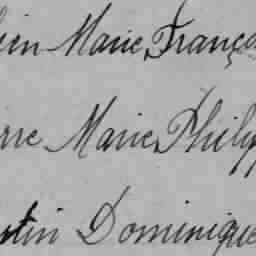 ien Marie Franço
rre Marie Philip
tin Dominique